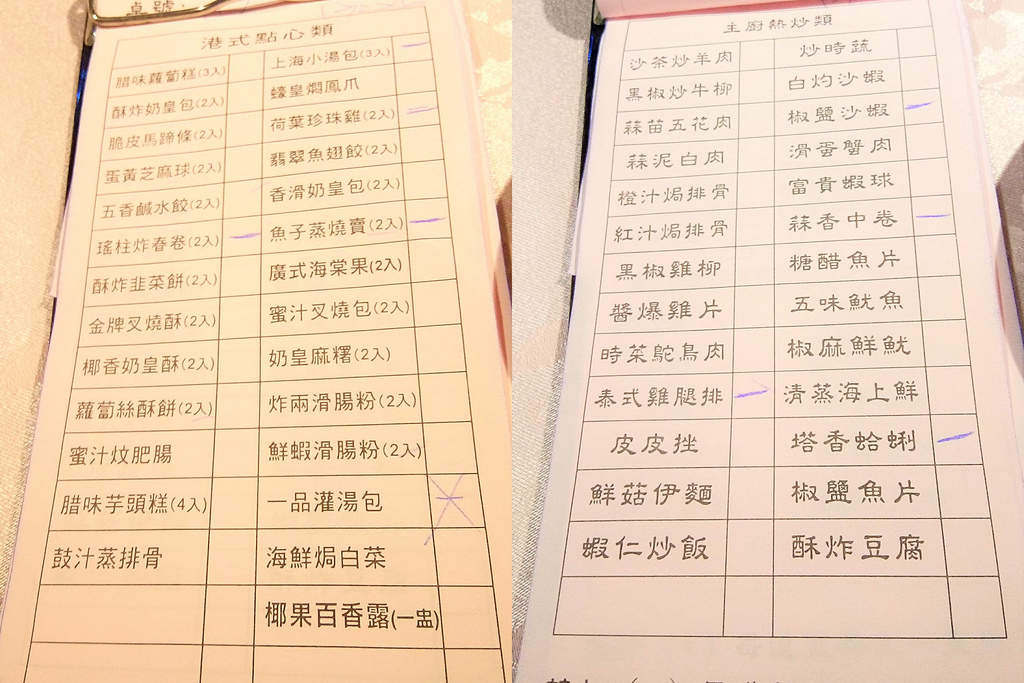 桌號:
港式點心類
腊味蘿蔔糕(3入) 上海小湯包(3入)
酥炸奶皇包(2入) 蠔皇燜鳳爪
脆皮馬蹄條(2入) 荷葉珍珠雞(2入)
蛋黃芝麻球(2入) 翡翠魚翅餃(2入)
五香鹹水餃(2入) 香滑奶皇包(2入)
瑤柱炸春卷(2入) 魚子蒸燒賣(2入)
酥炸韭菜餅(2入) 廣式海棠果(2入)
金牌叉燒酥(2入) 蜜汁叉燒包(2入)
椰香奶皇酥(2入) 奶皇麻糬(2入)
蘿蔔絲酥餅(2入) 炸兩滑腸粉(2入)
蜜汁炆肥腸 鮮蝦滑腸粉(2入)
腊味芋頭糕(4入) 一品灌湯包
鼓汁蒸排骨 海鮮焗白菜
椰果百香露(一盅)
主廚熱炒類
沙茶炒羊肉 炒時蔬
黑椒炒牛柳 白灼沙蝦
蒜苗五花肉 椒鹽沙蝦
蒜泥白肉 滑蛋蟹肉
橙汁焗排骨 富貴蝦球
紅汁焗排骨 蒜香中卷
黑椒雞柳 糖醋魚片
醬爆雞片 五味魷魚
時菜鴕鳥肉 椒麻鮮魷
泰式雞腿排 清蒸海上鮮
皮皮挫 塔香蛤蜊
鮮菇伊麵 椒鹽魚片
蝦仁炒飯 酥炸豆腐